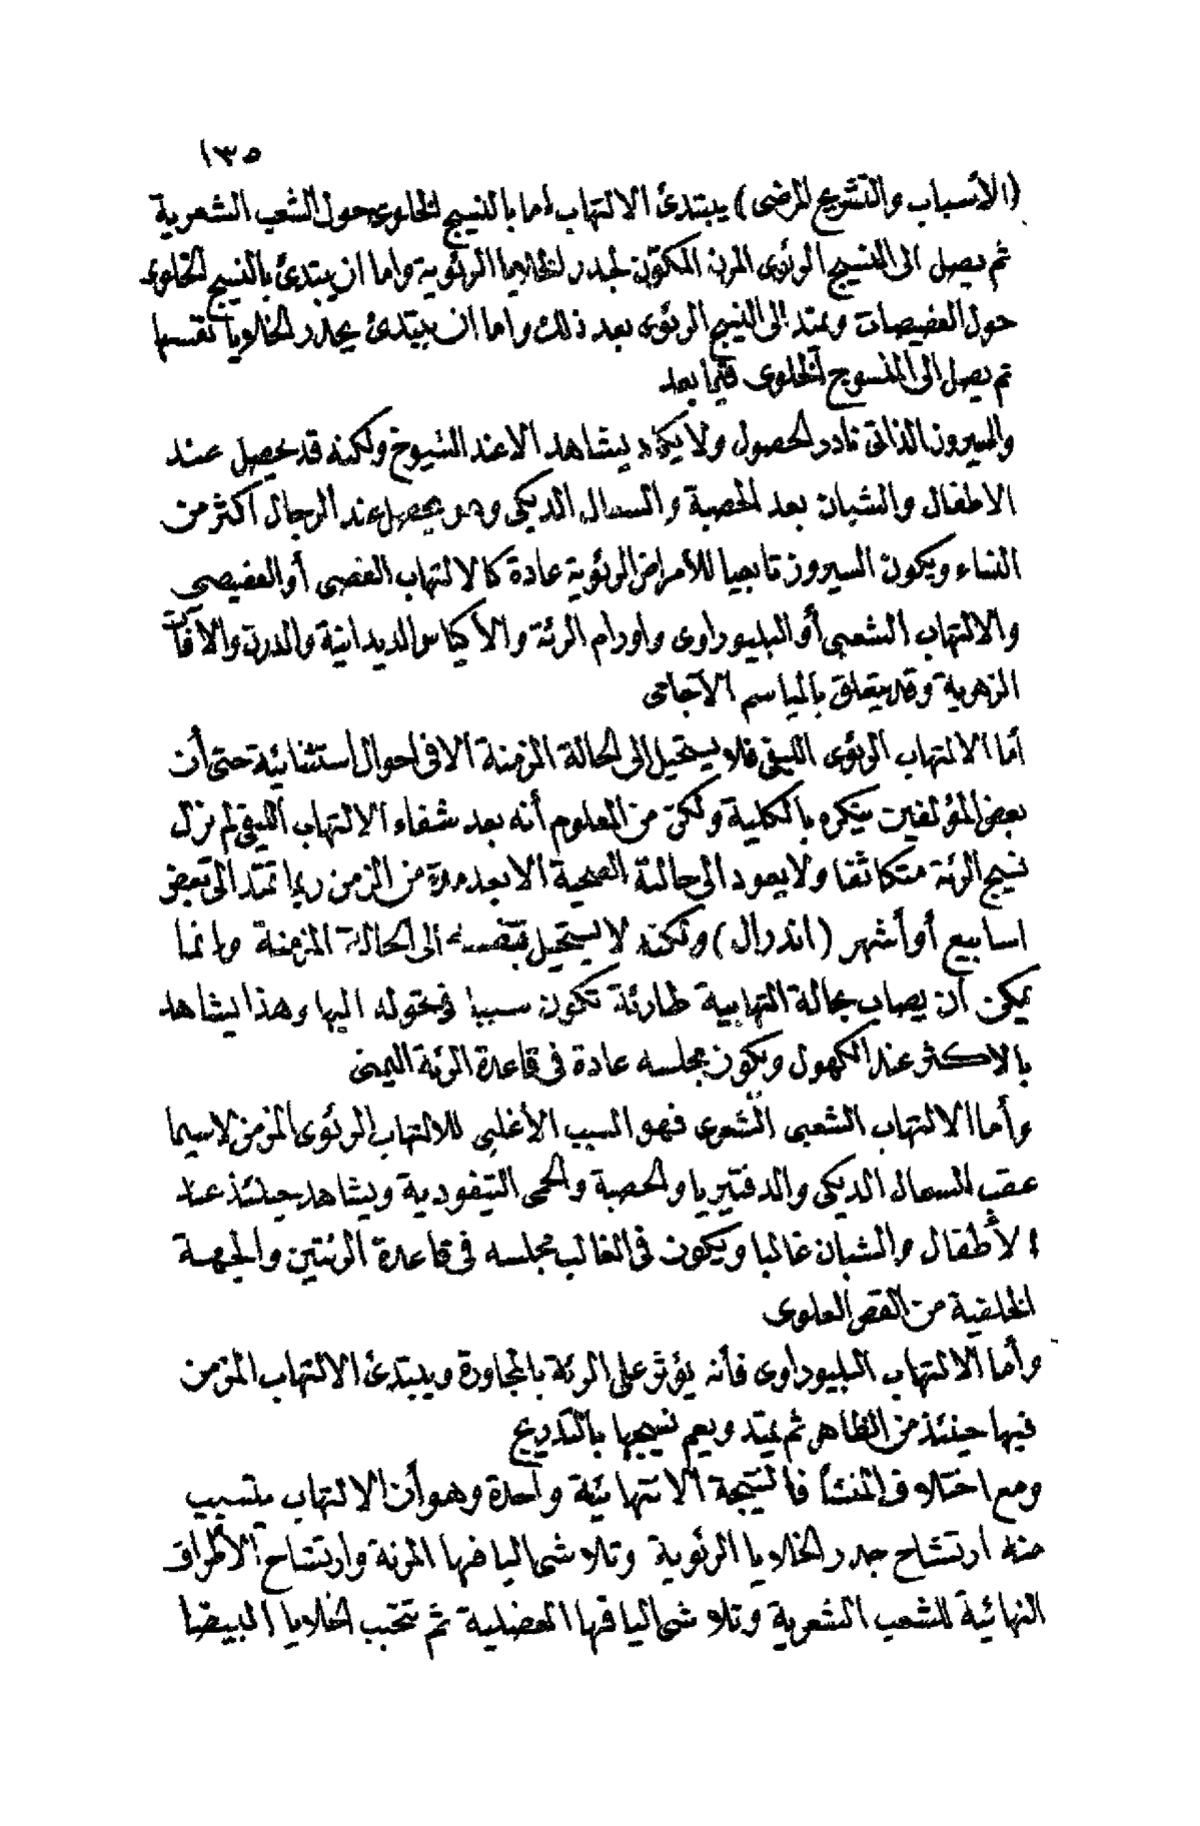 ١٣٥
(الأسباب والتشريح المرضى) يبتدئ الالتهاب أما بالنسيج الخلوى حول الشعب الشعرية
ثم يصل الى النسيج الرئوى المرن المكوّن لجدر الخلايا الرئوية واما ان يبتدئ بالنسيج الخلوى
حول الفصيصات ويمتد الى النسيج الرئوى بعد ذلك واما ان يبتدئ بجدر الخلايا نفسها
ثم يصل الى المنسوج الخلوى فيما بعد
والسيروز الذاتى نادر الحصول ولا يكاد يشاهد الا عند الشيوخ ولكنه قد يحصل عند
الاطفال والشبان بعد الحصبة والسعال الديكى وهو يحصل عند الرجال اكثر من
النساء ويكون السيروز تابعيا للأمراض الرئوية عادة كالالتهاب الفصى أو الفصيصى
والالتهاب الشعبى أو البليوراوى واورام الرئة والأكياس الديدانية والدرن والآفات
الزهرية وقد يتعلق بالمياسم الآجامى
أما الالتهاب الرئوى الليفى فلا يستحيل الى الحالة المزمنة الا فى احوال استثنائية حتى أن
بعض المؤلفين ينكره بالكلية ولكن من المعلوم أنه بعد شفاء الالتهاب الليفى لم يزل
نسيج الرئة متكاثفا ولا يعود الى حالته الصحية الا بعد مدة من الزمن ربما تمتد الى بعض
اسابيع أو أشهر (اندرال) ولكنه لا يستحيل بنفسه الى الحالة المزمنة وانما
يمكن أن يصاب بحالة التهابية طارئة تكون سببا فى تحوله اليها وهذا يشاهد
بالاكثر عند الكهول ويكون مجلسه عادة فى قاعدة الرئة اليمنى
وأما الالتهاب الشعبى الشعرى فهو السبب الأغلبى للالتهاب الرئوى المزمن لاسيما
عقب السعال الديكى والدفتيريا والحصبة والحمى التيفودية ويشاهد حينئذ عند
الأطفال والشبان غالبا ويكون فى الغالب مجلسه فى قاعدة الرئتين والجهة
الخلفية من الفص العلوى
وأما الالتهاب البليوراوى فأنه يؤثر على الرئة بالمجاورة ويبتدئ الالتهاب المزمن
فيها حينئذ من الظاهر ثم يمتد ويعم نسيجها بالتدريج
ومع اختلاف المنشأ فالنتيجة الانتهائية واحدة وهو أن الالتهاب يتسبب
منه ارتشاح جدر الخلايا الرئوية وتلاشى اليافها المرنة وارتشاح الأطراف
النهائية للشعب الشعرية وتلاشى اليافها العضلية ثم تتخبب الخلايا البيضا